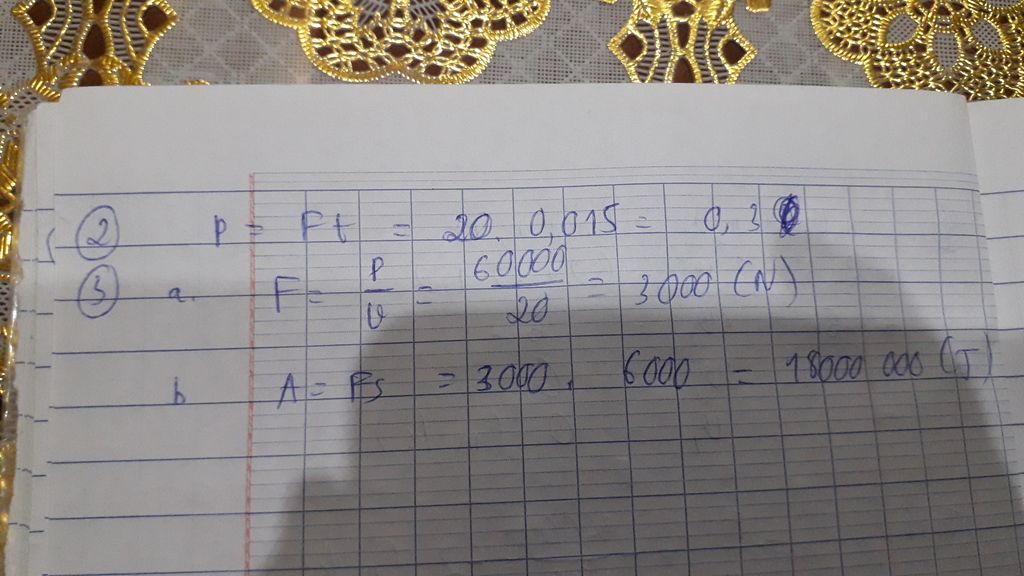 ② p = Ft = 20. 0,015 = 0,3
③ a. F = P/v = 60000/20 = 3000 (N)
b A = Fs = 3000. 6000 = 18000 000 (J)